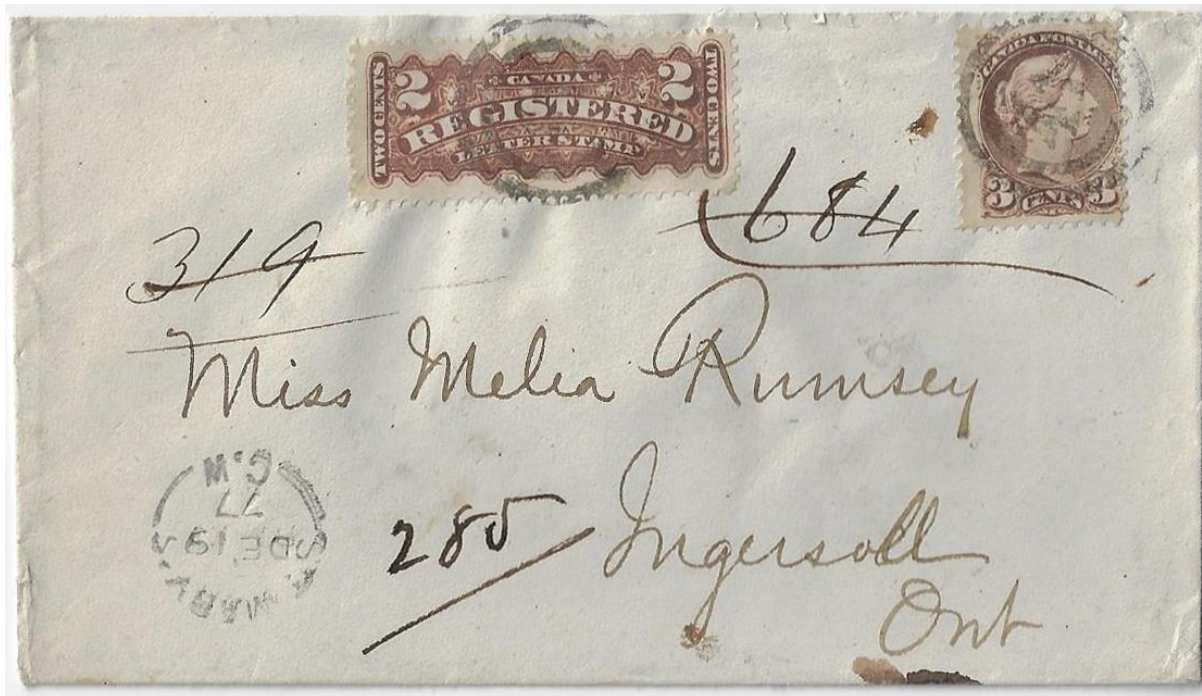 TWO CENTS 2 CANADA 2 TWO CENTS
REGISTERED
LETTER STAMP
CANADA POSTAGE
3 3
319
684
Miss Melia Rumsey
285
Ingersoll
Ont
C.W
77
DE 19